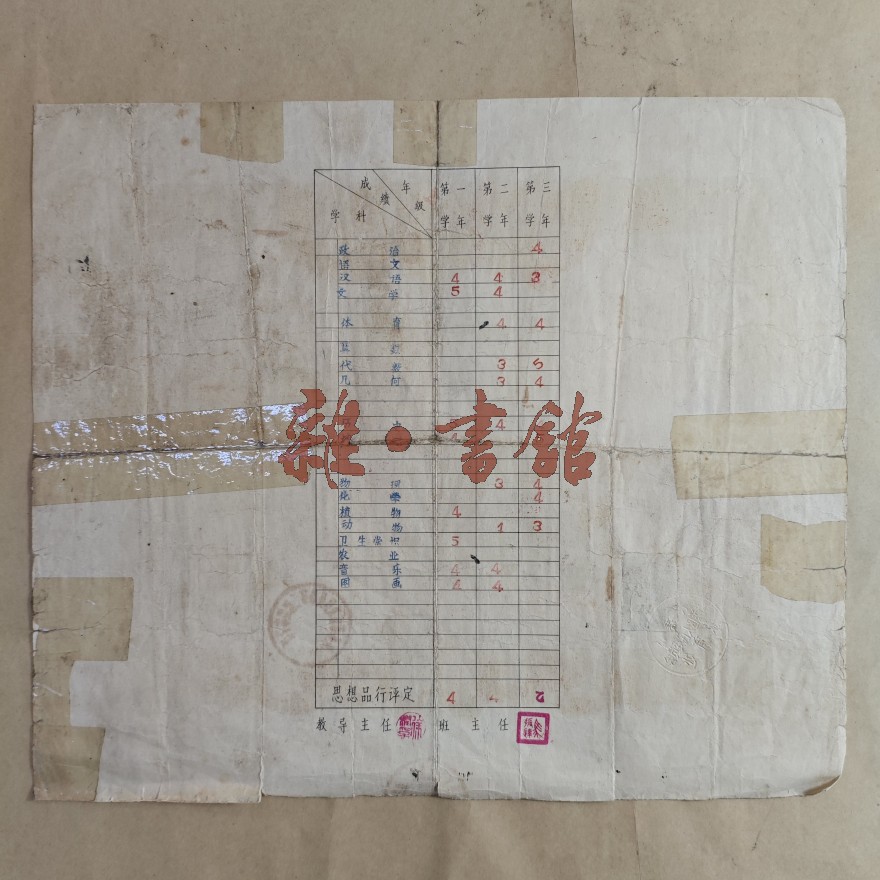 成绩 年级 学科 第一学年 第二学年 第三学年
政治 4
语文
汉语 4 4 3
文学 5 4
体育 4 4
代数 3 5
几何 3 4
4
雜·書館
物理 3 4
化学 4
植物 4
动物 1 3
卫生常识 5
农业
音乐 4 4
图画 4 4
思想品行评定 4 乙
教导主任 班主任